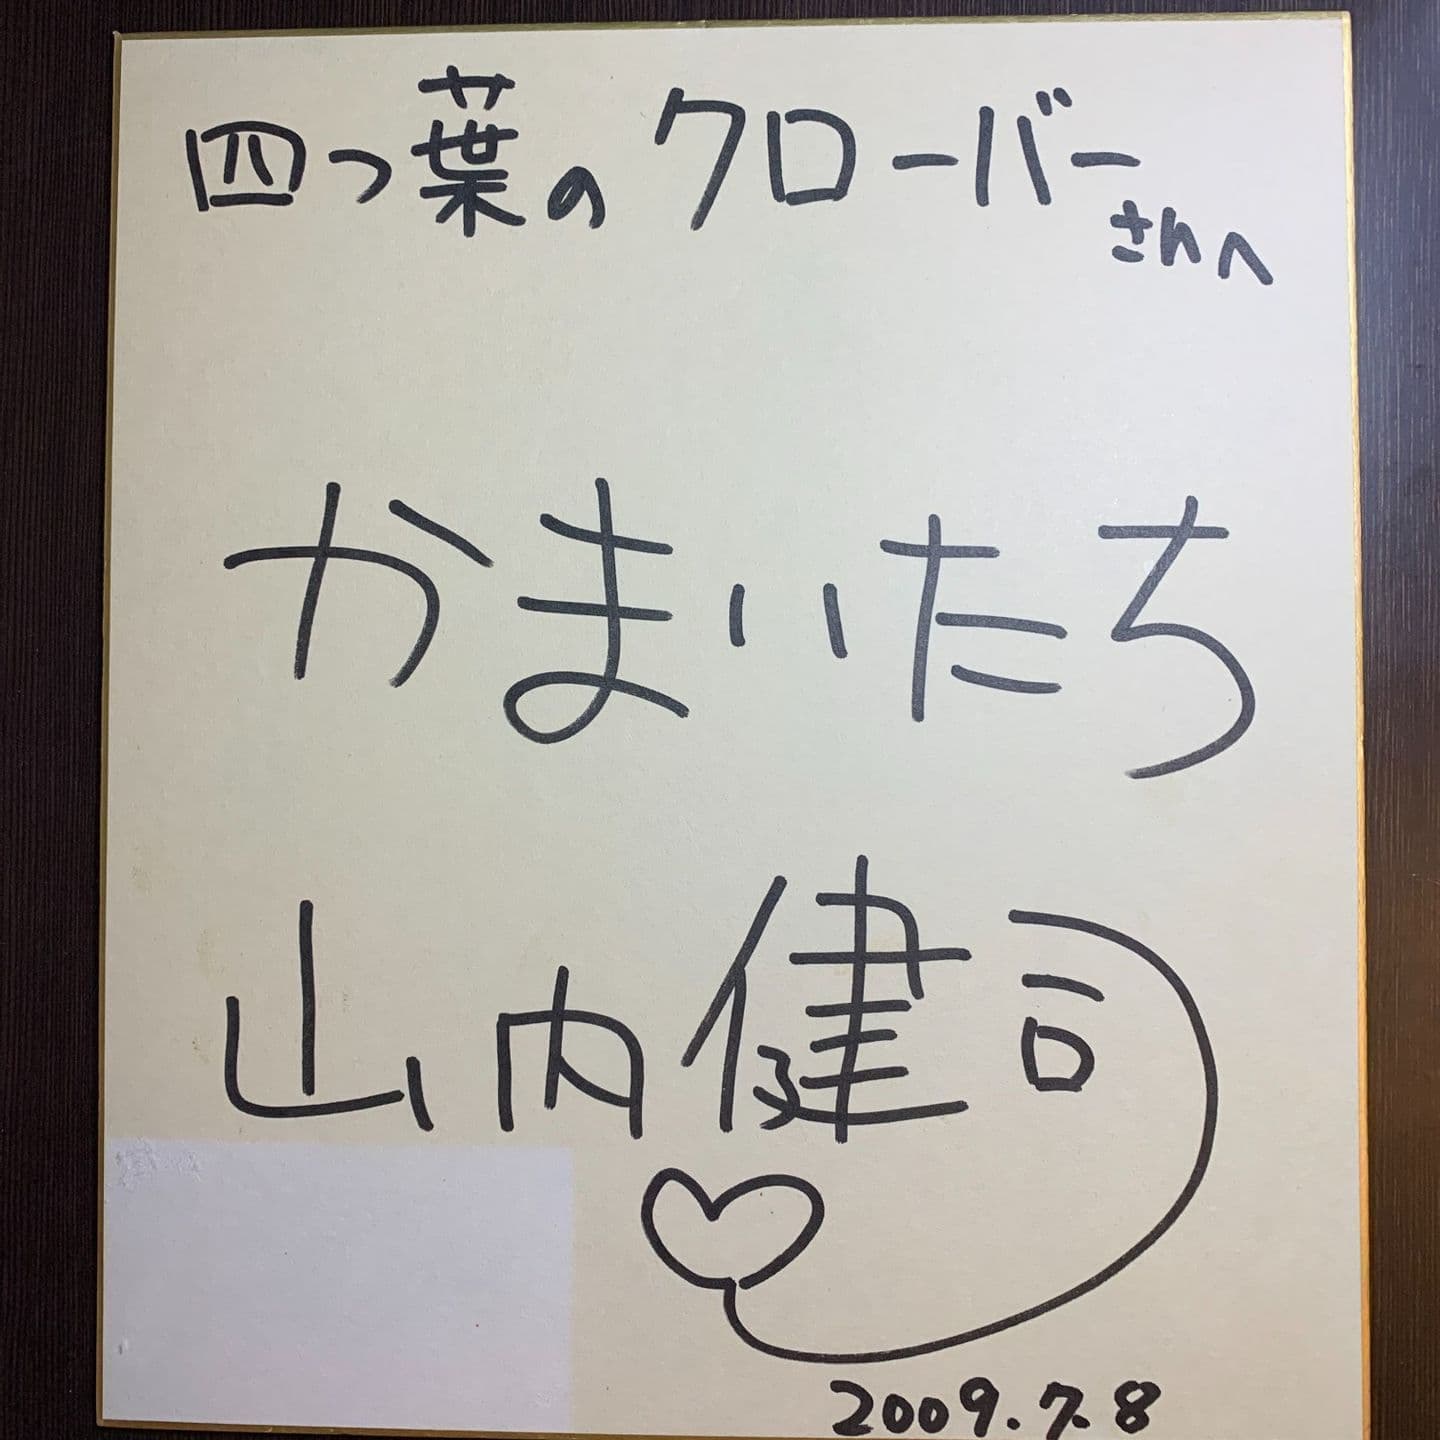 四つ葉のクローバー
さんへ
かまいたち
山内健司
2009.7.8